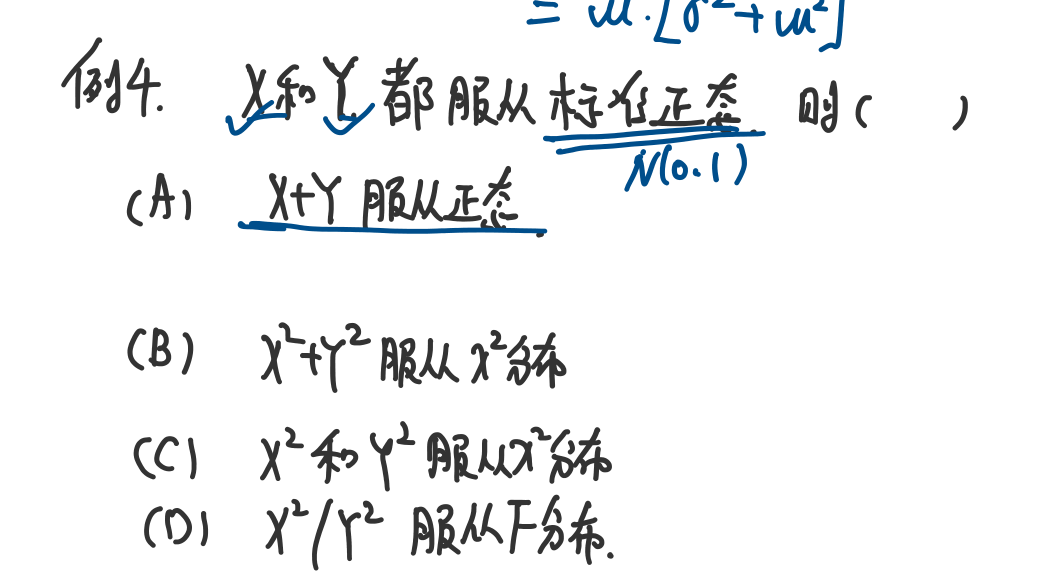 = μ·[σ²+μ²]
例4. X和Y都服从标准正态 则( )
N(0.1)
(A) X+Y 服从正态
(B) X²+Y² 服从 χ²分布
(C) X²和Y² 服从χ²分布
(D) X²/Y² 服从F分布.